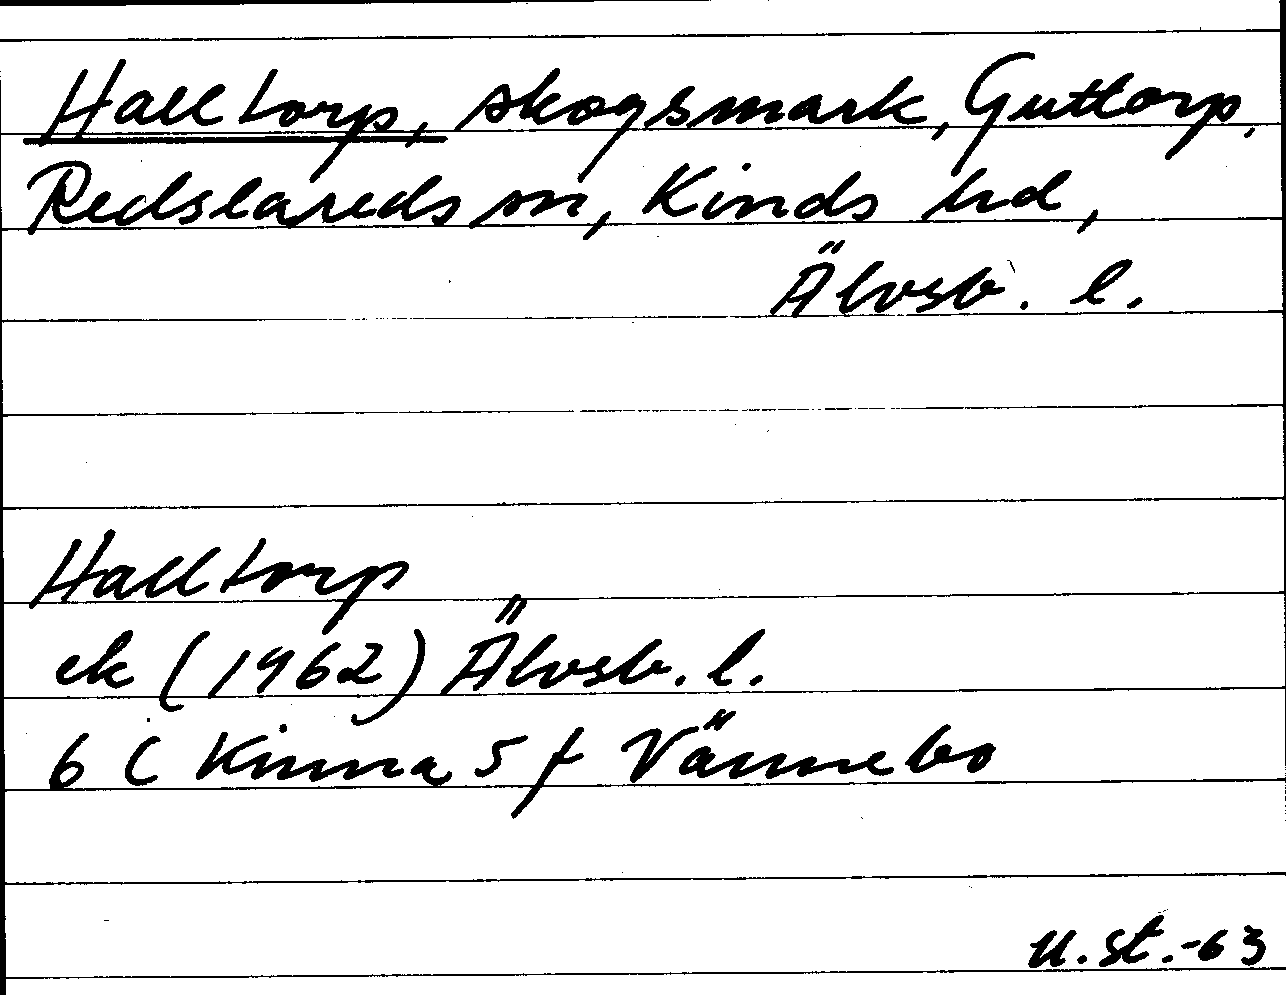 Halltorp, skogsmark, Guttorp,
Redslareds sn, Kinds hd,
Älvsb. l.
Halltorp
ek (1962) Älvsb. l.
6 C Kinna 5 f Vännebo
U.st.-63